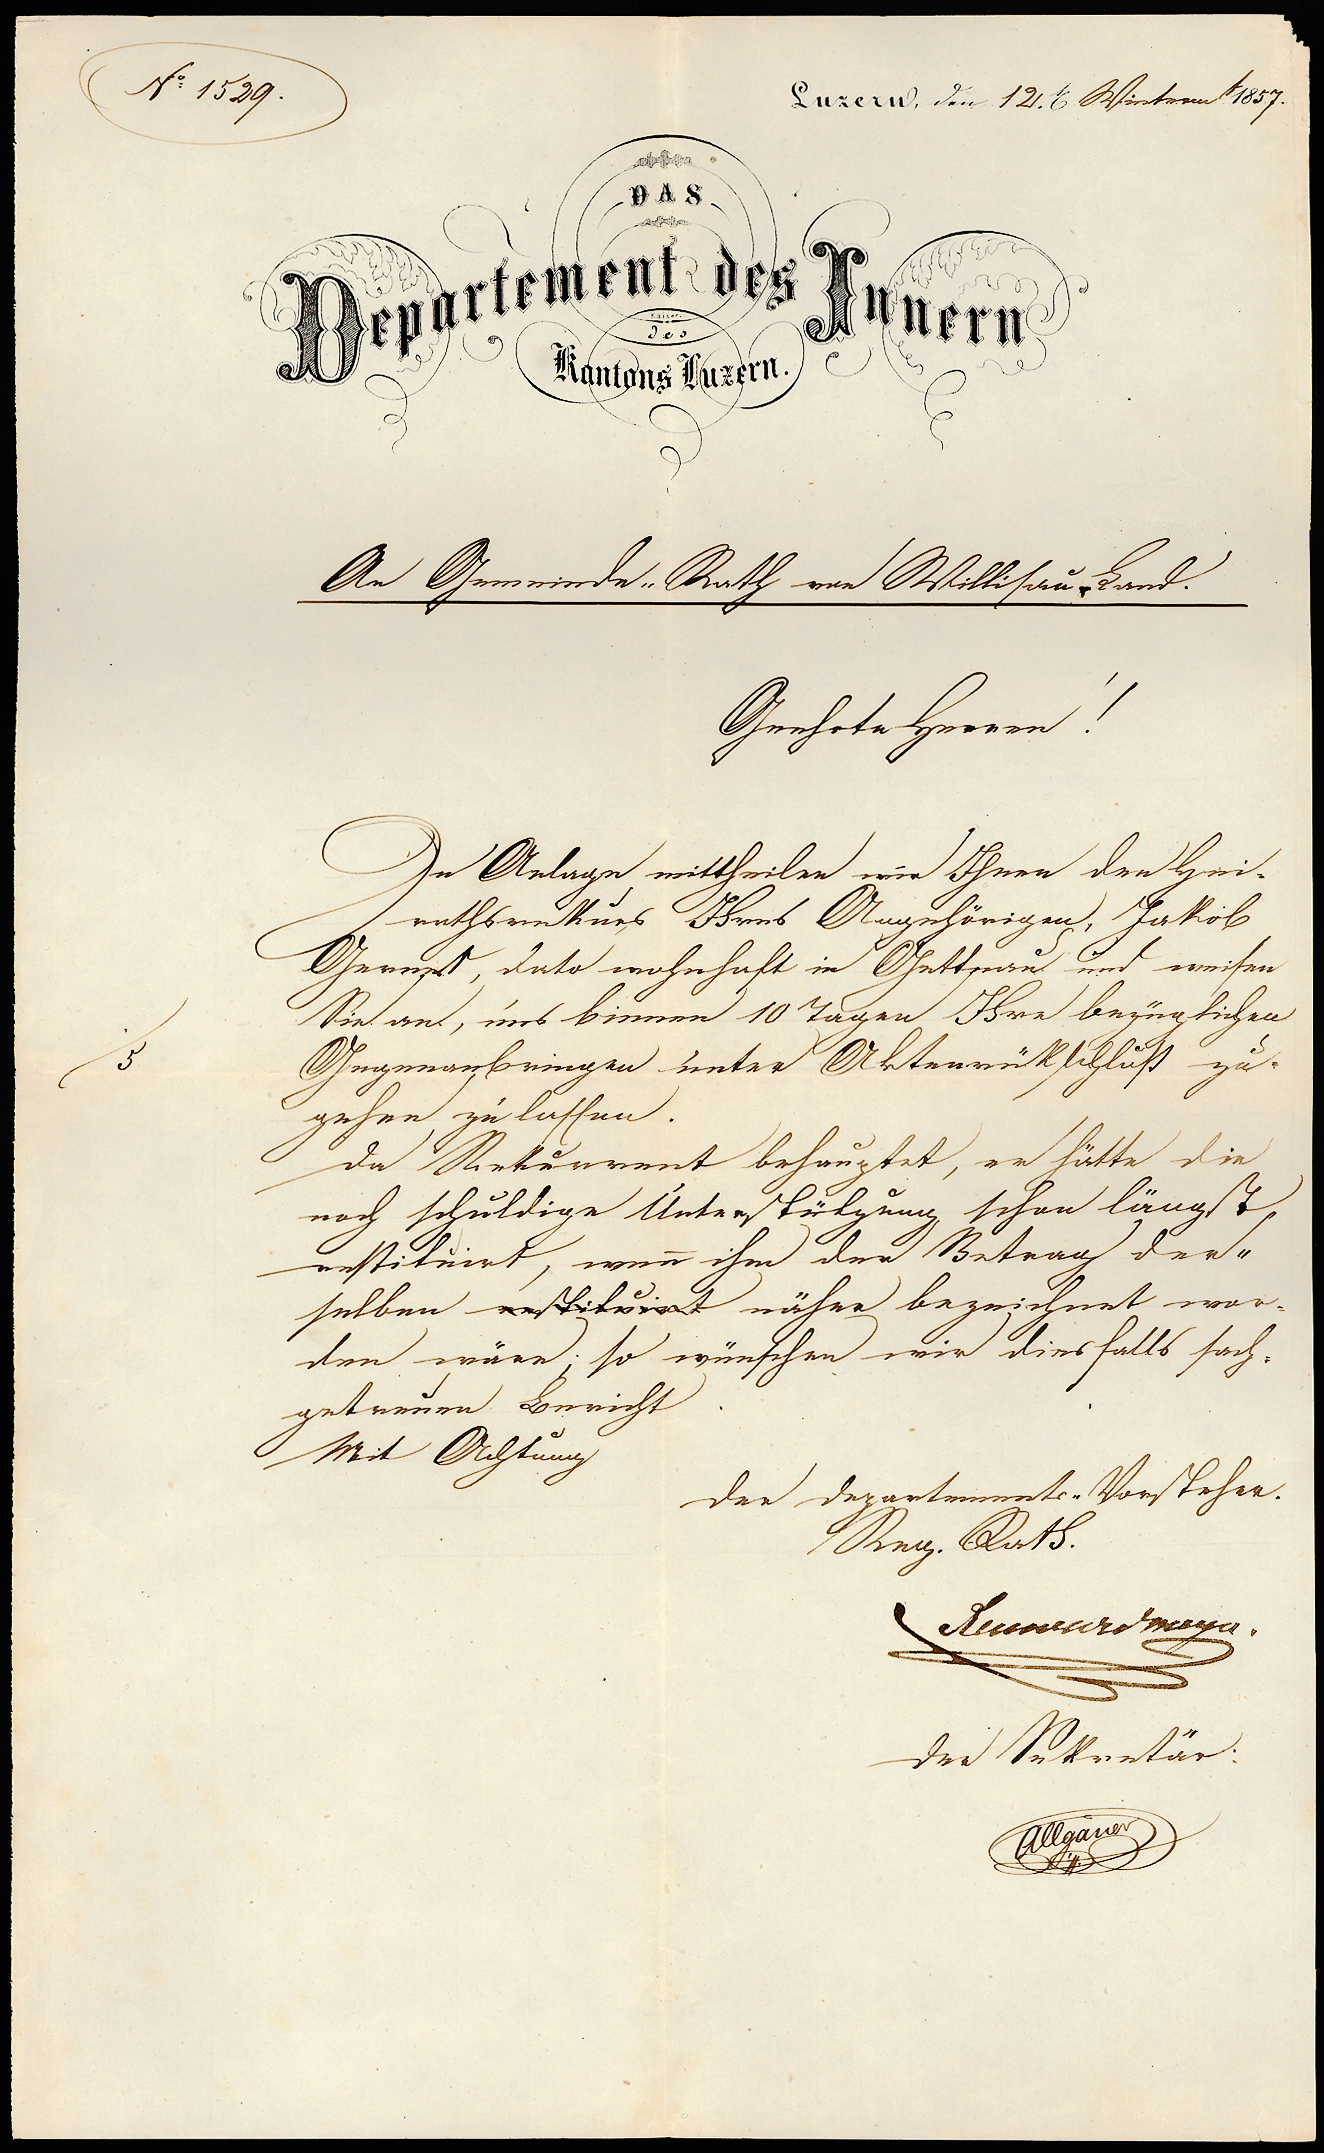 No 1529.
Luzern, den 12.t Winterm 1857.
DAS
Departement des Innern
des
Kantons Luzern.
An Gemeinde-Rath von Willisau-Land.
Geehrte Herren!
In Anlage mittheilen wir Ihnen den Hei-
rathsrekurs Ihres Angehörigen, Jakob
dato wohnhaft in Gettnau und weisen
Sie an, uns binnen 10 Tagen Ihre bezüglichen
5
Gegenanbringen unter Aktenrükschluß zu-
gehen zu lassen.
Da Rekurrent behauptet, er hätte die
noch schuldige Unterstützung schon längst
restituirt, wenn ihm der Betrag der-
selben restituirt näher bezeichnet wor-
den wäre; so wünschen wir diesfalls sach-
getreuen Bericht.
Mit Achtung
Der Departements-Vorsteher.
Reg. Rath.
Der Sekretär:
Allgäuer